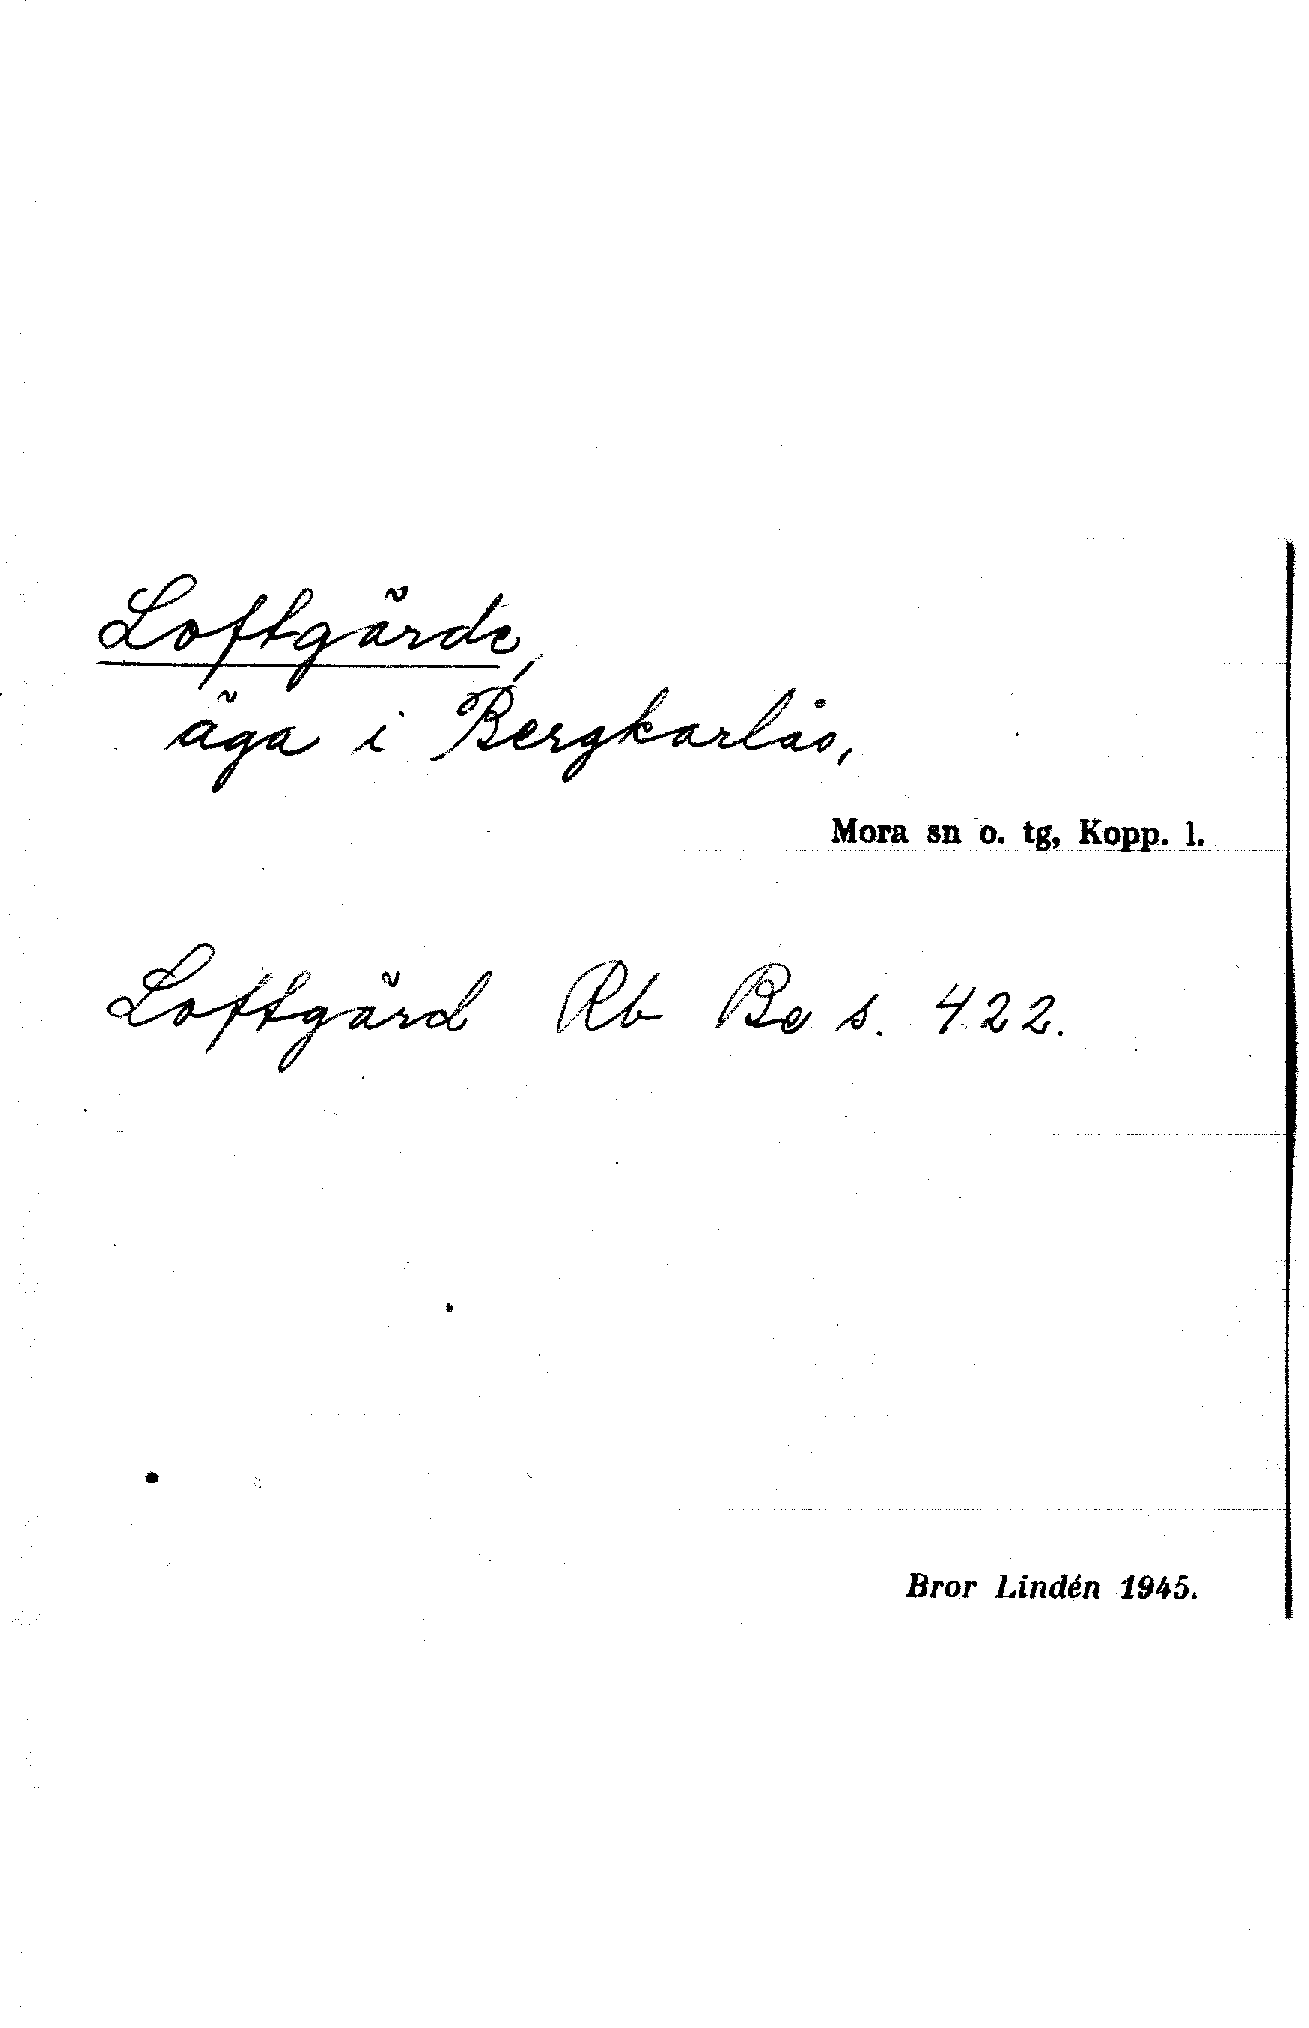 Loftgärde,
äga i Bergkarlås,
Mora sn o. tg, Kopp. l.
Loftgärd Rb Be s. 422.
Bror Lindén 1945.